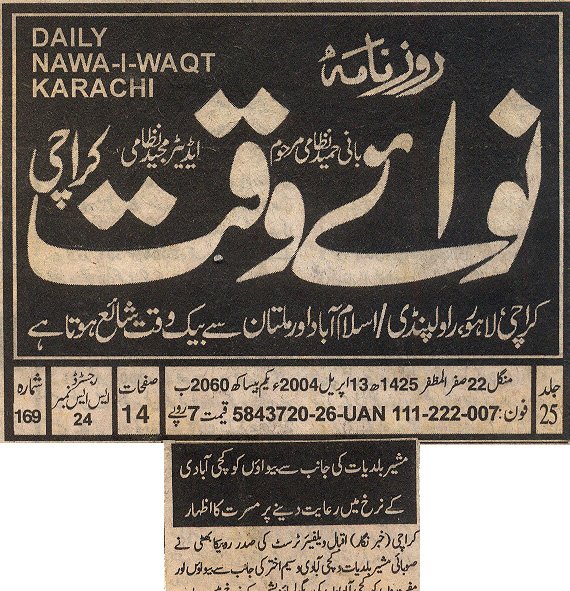 DAILY
NAWA-I-WAQT
KARACHI
روزنامہ
نوائے وقت
کراچی
بانی حمید نظامی مرحوم
ایڈیٹر مجید نظامی
کراچی، لاہور، راولپنڈی/اسلام آباد اور ملتان سے بیک وقت شائع ہوتا ہے
جلد
25
منگل 22 صفر المظفر 1425ھ 13 اپریل 2004ء یکم بیساکھ 2060ب
فون: 5843720-26-UAN 111-222-007 قیمت 7 روپے
صفحات
14
رجسٹرڈ
ایس ایس نمبر
24
شمارہ
169
مشیر بلدیات کی جانب سے بیواؤں کو کچی آبادی
کے نرخ میں رعایت دینے پر مسرت کا اظہار
کراچی (خبر نگار) اقبال ویلفیئر ٹرسٹ کی صدر روبیکا بھٹی نے
صوبائی مشیر بلدیات و کچی آبادی وسیم اختر کی جانب سے بیواؤں اور